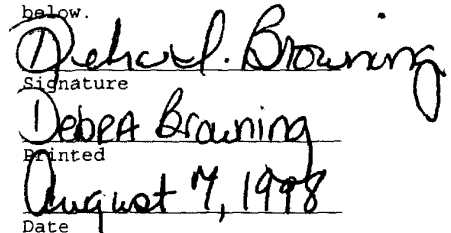 below.
Debra J. Browning
Signature
DebRA Browning
Printed
August 7, 1998
Date